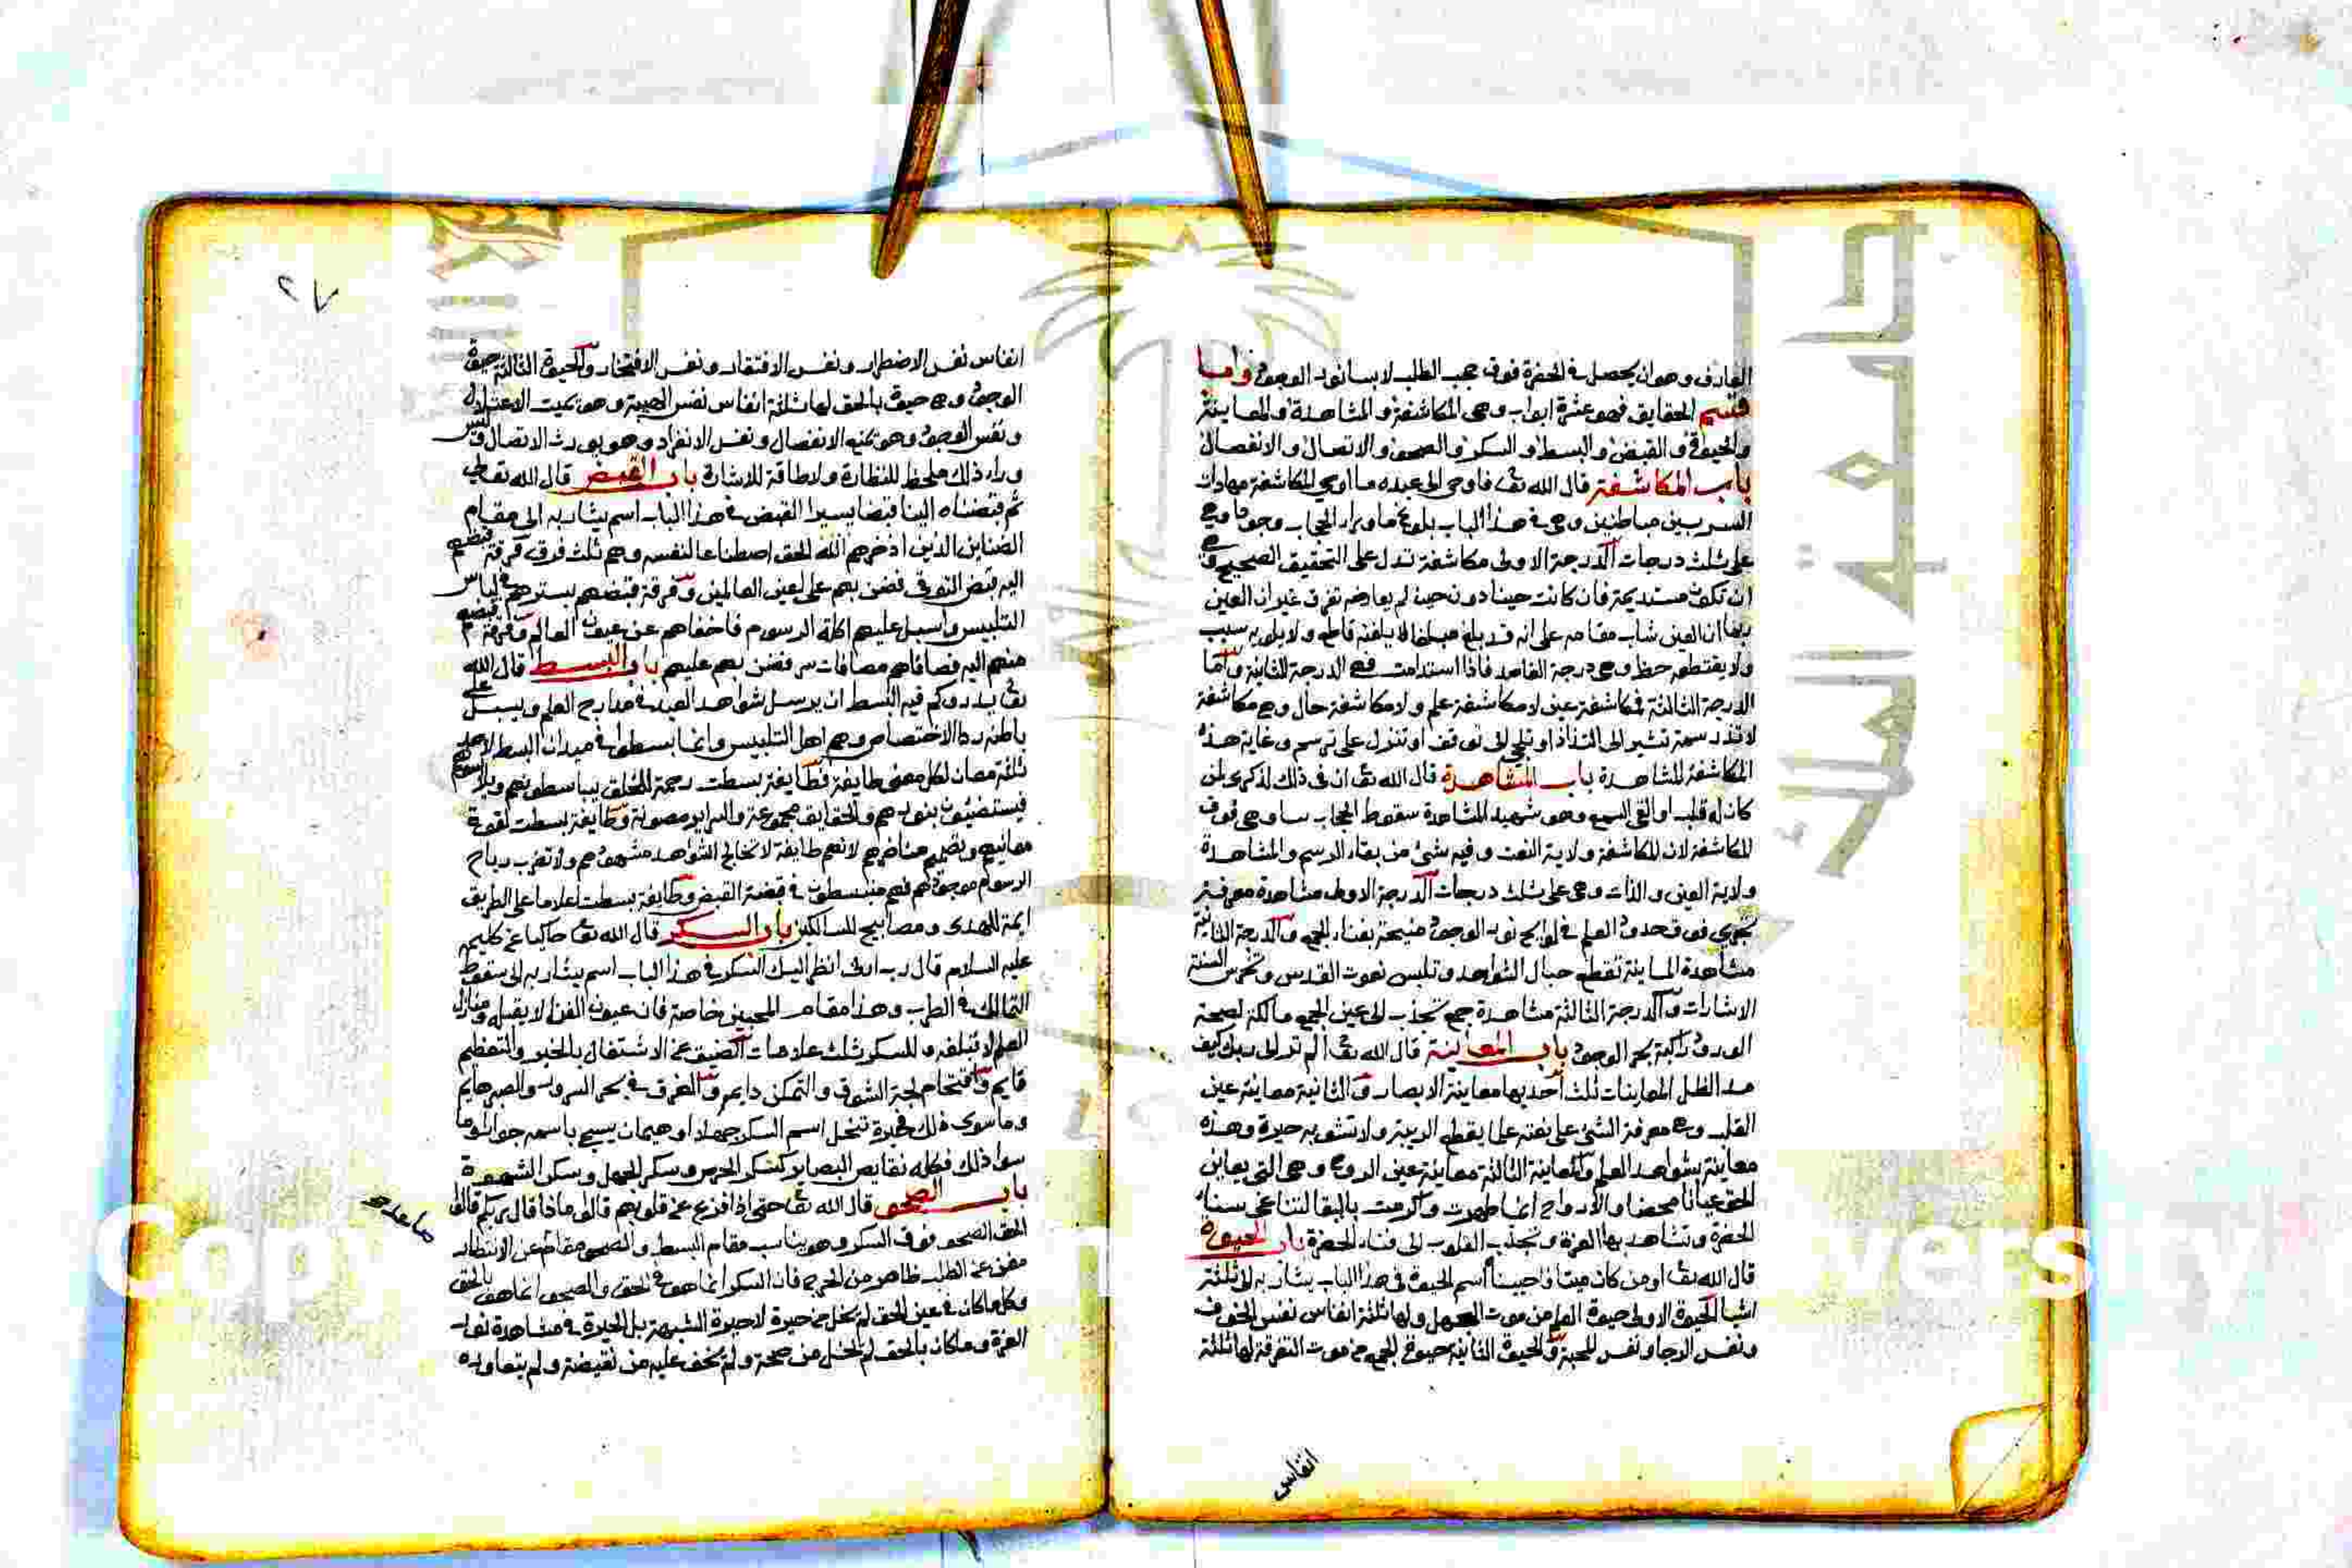 العارف وهو ان يحصل في الحضرة فوق حجب الطلب لابسا نور الوجود واما
قسم الحقايق فهو عشرة ابواب وهي المكاشفة والمشاهدة والمعاينة
والحيوة والقبض والبسط والسكر والصحو والاتصال والانفصال
باب المكاشفة قال الله تعالى فاوحى الى عبده ما اوحى المكاشفة مهادات
السر بين متباطنين وهي في هذا الباب بلوغ ما وراء الحجاب وجودا وهي
على ثلث درجات الدرجة الاولى مكاشفة تدل على التحقيق الصحيح وهي
ان تكون مستديمة فان كانت حينا دون حين لم يعارضه تفرق غير ان العين
ربما ان الغين شاب مقامه على انه قد بلغ مبلغا لا يلفته قاطع ولا يلويه سبب
ولا يقتطعه حظ وهي درجة القاصد فاذا استدامت فهي الدرجة الثانية واما
الدرجة الثالثة فمكاشفة عين لا مكاشفة علم ولا مكاشفة حال وهي مكاشفة
لا تذر سمة تشير الى التذاذ او تلجي الى توقف او تنزل على ترسم وغاية هذه
المكاشفة المشاهدة باب المشاهدة قال الله تعالى ان في ذلك لذكرى لمن
كان له قلب او القى السمع وهو شهيد المشاهدة سقوط الحجاب بتا وهي فوق
المكاشفة لان المكاشفة ولاية النعت وفيه شئ من بقاء الرسم والمشاهدة
ولاية العين والذات وهي على ثلث درجات الدرجة الاولى مشاهدة معرفة
تجري فوق حدود العلم في لوايح نور الوجود منيخة بفناء الجمع والدرجة الثانية
مشاهدة المعاينة تقطع حبال الشواهد وتلبس نعوت القدس وتخرس السنة
الاشارات والدرجة الثالثة مشاهدة جمع تجذب الى عين الجمع مالكة لصحة
الورود راكبة بحر الوجود باب المعاينة قال الله تعالى الم تر الى ربك كيف
مد الظل المعاينات ثلث احديها معاينة الابصار والثانية معاينة عين
القلب وهي معرفة الشئ على نعته علما يقطع الريبة ولا تشوبه حيرة وهذه
معاينة بشواهد العلم والمعاينة الثالثة معاينة عين الروح وهي التي يعاين
الحق عيانا محضا والارواح انما طهرت واكرمت بالبقا لتناغي سناء
الحضرة وتشاهد بها العزة وتجذب القلوب الى فناء الحضرة باب الحيوة
قال الله تعالى اومن كان ميتا فاحييناه اسم الحيوة في هذا الباب يشار به الى ثلثة
اشيا الحيوة الاولى حيوة العلم من موت الجهل ولها ثلثة انفاس نفس الخوف
ونفس الرجا ونفس المحبة والحيوة الثانية حيوة الجمع من موت التفرقة لها ثلثة
انفاس
٢٧
انفاس نفس الاضطرار ونفس الافتقار ونفس الافتخار والحيوة الثالثة حيوة
الوجود وهي حيوة بالحق لها ثلثة انفاس نفس الهيبة وهو يميت الاعتلال
ونفس الوجود وهو يمنع الانفصال ونفس الانفراد وهو يورث الاتصال وليس
وراء ذلك ملحظ للنظارة ولا طاقة للاشارة باب القبض قال الله تعالى
ثم قبضناه الينا قبضا يسيرا القبض في هذا الباب اسم يشار به الى مقام
الضناين الذين ادخرهم الله الحق اصطناعا لنفسه وهم ثلث فرق فرقة قبضهم
اليه قبض التوفي فضن بهم على اعين العالمين وفرقة قبضهم بسترهم في لباس
التلبيس واسبل عليهم اكلة الرسوم فاخفاهم عن عيون العالم وفرقة قبضهم
منهم اليه فصافاهم مصافات سر فضن بهم عليهم باب البسط قال الله
تعالى يذروكم فيه البسط ان يرسل شواهد العبد في مدارج العلم ويسبل على
باطنه ردا الاختصاص وهم اهل التلبيس وانما بسطوا في ميدان البسط لاحد
ثلثة معان لكل معنى طايفة فطايفة بسطت رحمة للخلق يباسطونهم ويلابسونهم
فيستضيئون بنورهم والحقايق مجموعة والسراير مصونة وطايفة بسطت لقوة
معانيهم وتصميم مناظرهم لانهم طايفة لا تخالج الشواهد مشهودهم ولا تضرب رياح
الرسوم موجودهم فهم منبسطون في قبضة القبض وطايفة بسطت اعلاما على الطريق
ايمة للهدى ومصابيح للسالكين باب السكر قال الله تعالى حاكيا عن كليمه
عليه السلام قال رب ارني انظر اليك السكر في هذا الباب اسم يشار به الى سقوط
التمالك في الطرب وهذا مقام المحبين خاصة فان عيون الفنا لا يقبله ومنازل
العلم لا تبلغه وللسكر ثلث علامات الضيق عن الاشتغال بالخبر والتعظيم
قايم واقتحام لجة الشوق والتمكن دايم والغرق في بحر السرور والصبر هايم
وما سوى ذلك فحيرة تنحل اسم السكر جهلا او هيمان يسمى باسمه جورا وما
سوا ذلك فكله نقايص البصاير كسكر الحرص وسكر الجهل وسكر الشهوة
باب الصحو قال الله تعالى حتى اذا فزع عن قلوبهم قالوا ماذا قال ربكم قالوا
الحق الصحو فوق السكر وهو يناسب مقام البسط والصحو مقام عن الانتظار
مغن عن الطلب طاهر من الحرج فان السكر انما هو في الحق والصحو انما هو بالحق
وكل ما كان في عين الحق لم يخل من حيرة لا حيرة الشبهة بل الحيرة في مشاهدة نور
العزة وما كان بالحق لم يخل من صحة ولم يخف عليه من نقيضة ولم يتعاوره
صاعد